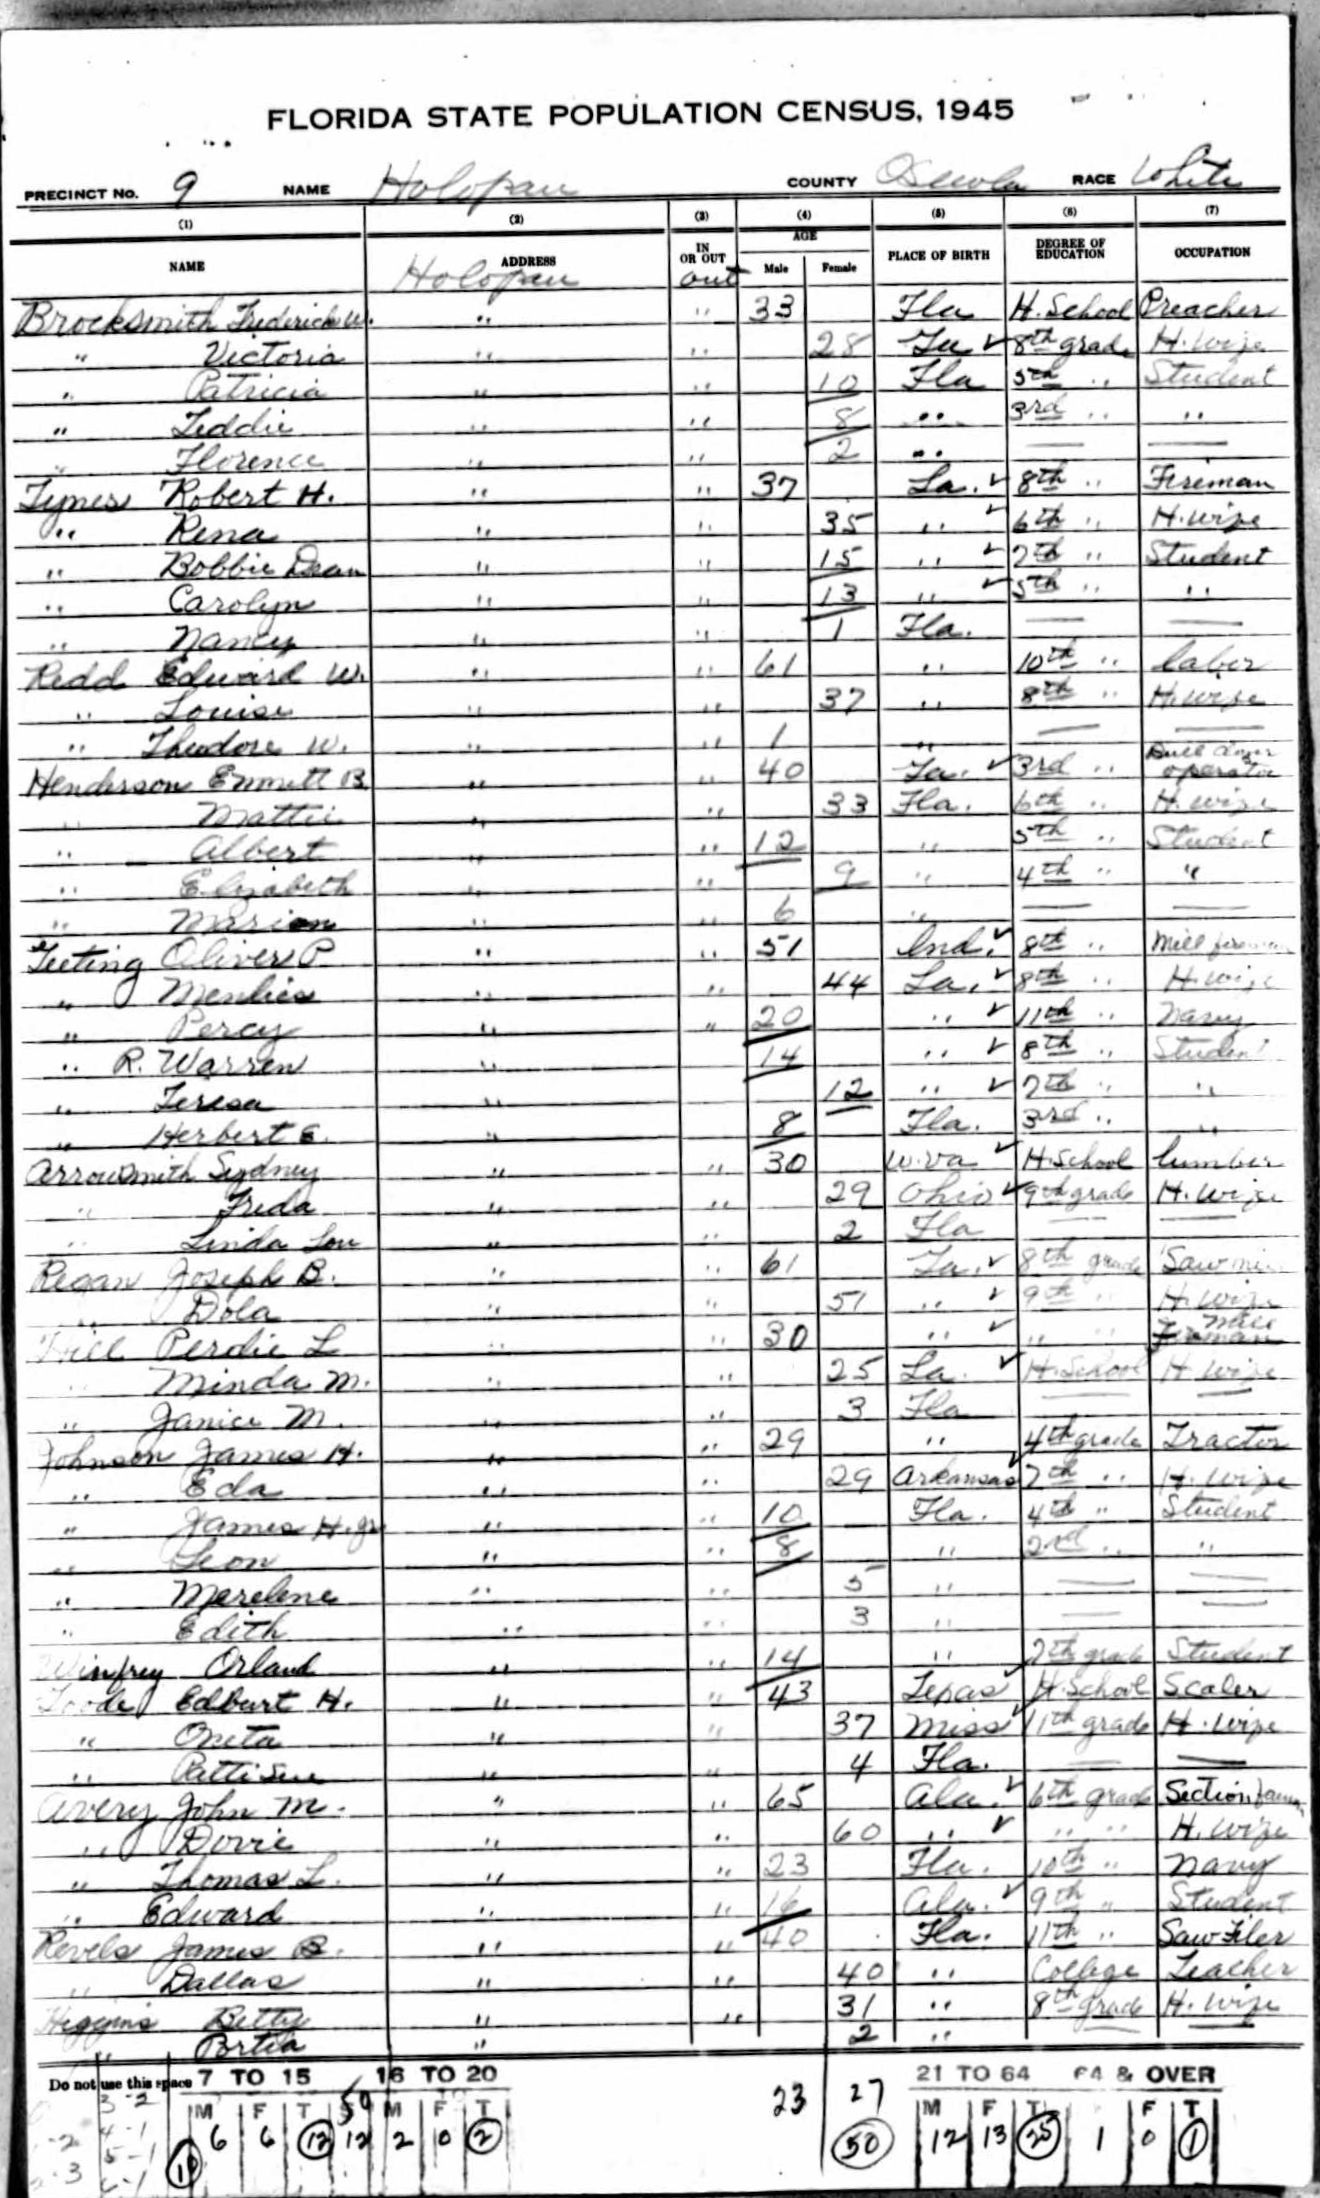 FLORIDA STATE POPULATION CENSUS, 1945
PRECINCT No. 9 NAME Holopau COUNTY Osceola RACE White
(1) (2) (3) (4) (5) (6) (7)
NAME ADDRESS IN OR OUT AGE Male Female PLACE OF BIRTH DEGREE OF EDUCATION OCCUPATION
Holopau out
Brocksmith Frederick W. " " 33 Fla H. School Preacher
" Victoria " " 28 ✓ 8th grade H. wife
" Patricia " " 10 Fla 5th " Student
" Teddie " " 8 " 3rd " "
" Florence " " 2 " — —
Tynes Robert H. " " 37 La. ✓ 8th " Fireman
" Rena " " 35 " ✓ 6th " H. wife
" Bobbie Dean " " 15 " ✓ 7th " Student
" Carolyn " " 13 " ✓ 5th " "
" Nancy " " 1 Fla. — —
Redd Edward W. " " 61 " 10th " labor
" Louise " " 37 " 8th " H. wife
" Theodore W. " " 1 " — —
Henderson Emmett B. " " 40 ✓ 3rd " operator
" Mattie " " 33 Fla. 6th " H. wife
" Albert " " 12 " 5th " Student
" Elizabeth " " 9 " 4th " "
" Marion " " 6 " — —
Teeting Oliver P. " " 51 Ind. ✓ 8th " Mill fireman
" Menlies " " 44 La. ✓ 8th " H. wife
" Percy " " 20 " ✓ 11th " Navy
" R. Warren " 14 " ✓ 8th " Student
" Teresa " 12 " ✓ 7th " "
" Herbert E. " 8 Fla. 3rd " "
Arrowsmith Sydney " " 30 W. Va ✓ H. School lumber
" Freda " " 29 Ohio ✓ 9th grade H. wife
" Linda Lou " " 2 Fla — —
Regan Joseph B. " " 61 ✓ 8th grade Saw mi
" Dola " " 51 " ✓ 9th " H. wife
Hill Perdie L " " 30 " ✓ " " Mill Fireman
" Minda M. " " 25 La. ✓ H. School H. wife
" Janice M. " " 3 Fla — —
Johnson James H. " " 29 " 4th grade Tractor
" Eda " " 29 Arkansas ✓ 7th " H. wife
" James H. Jr " " 10 Fla. 4th " Student
" Leon " " 8 " 2nd " "
" Merelene " " 5 " — —
" Edith " " 3 " — —
Winfrey Orland " " 14 " 7th grade Student
Goode Edburt H. " " 43 Texas ✓ H. School Scaler
" Oneta " " 37 Miss ✓ 11th grade H. wife
" Patti Sue " " 4 Fla. — —
Avery John M. " " 65 Ala. ✓ 6th grade Section
" Dovie " " 60 " ✓ " " H. wife
" Thomas L. " " 23 Fla. 10th " Navy
" Edward " " 16 Ala. ✓ 9th " Student
Revels James B. " " 40 Fla. 11th " Saw Filer
" Dallas " " 40 " College Teacher
Higgins Betty " " 31 " 8th grade H. wife
" Portia " 2 " —
Do not use this space 7 TO 15 16 TO 20 21 TO 64 64 & OVER
M F T M F T 23 27 M F T F T
6 6 12 12 2 0 2 50 12 13 25 1 0 1
3-2
4-1
5-1